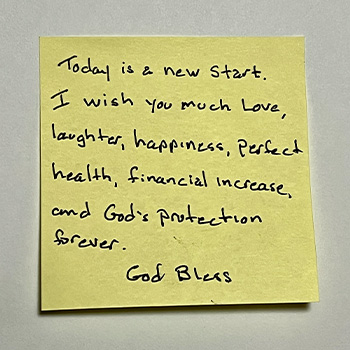 Today is a new start.
I wish you much Love,
laughter, happiness, perfect
health, financial increase,
and God's protection
forever.
God Bless